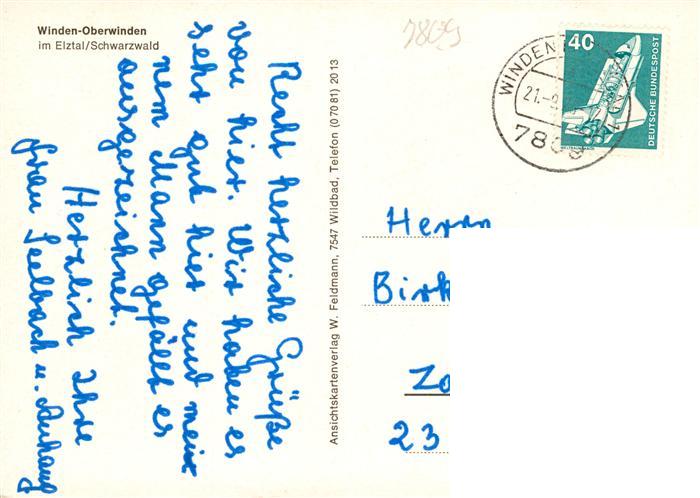 Winden-Oberwinden
im Elztal/Schwarzwald
7809
Recht herzliche Grüße
von hier. Wir haben es
sehr gut hier und mei-
nem Mann gefällt es
ausgezeichnet.
Herzlich Ihre
Frau Seelbach u. Anhang
Ansichtskartenverlag W. Feldmann, 7547 Wildbad, Telefon (0 70 81) 20 13
WINDEN
21.-
7809
40
DEUTSCHE BUNDESPOST
Herrn
Birk
Zo
23